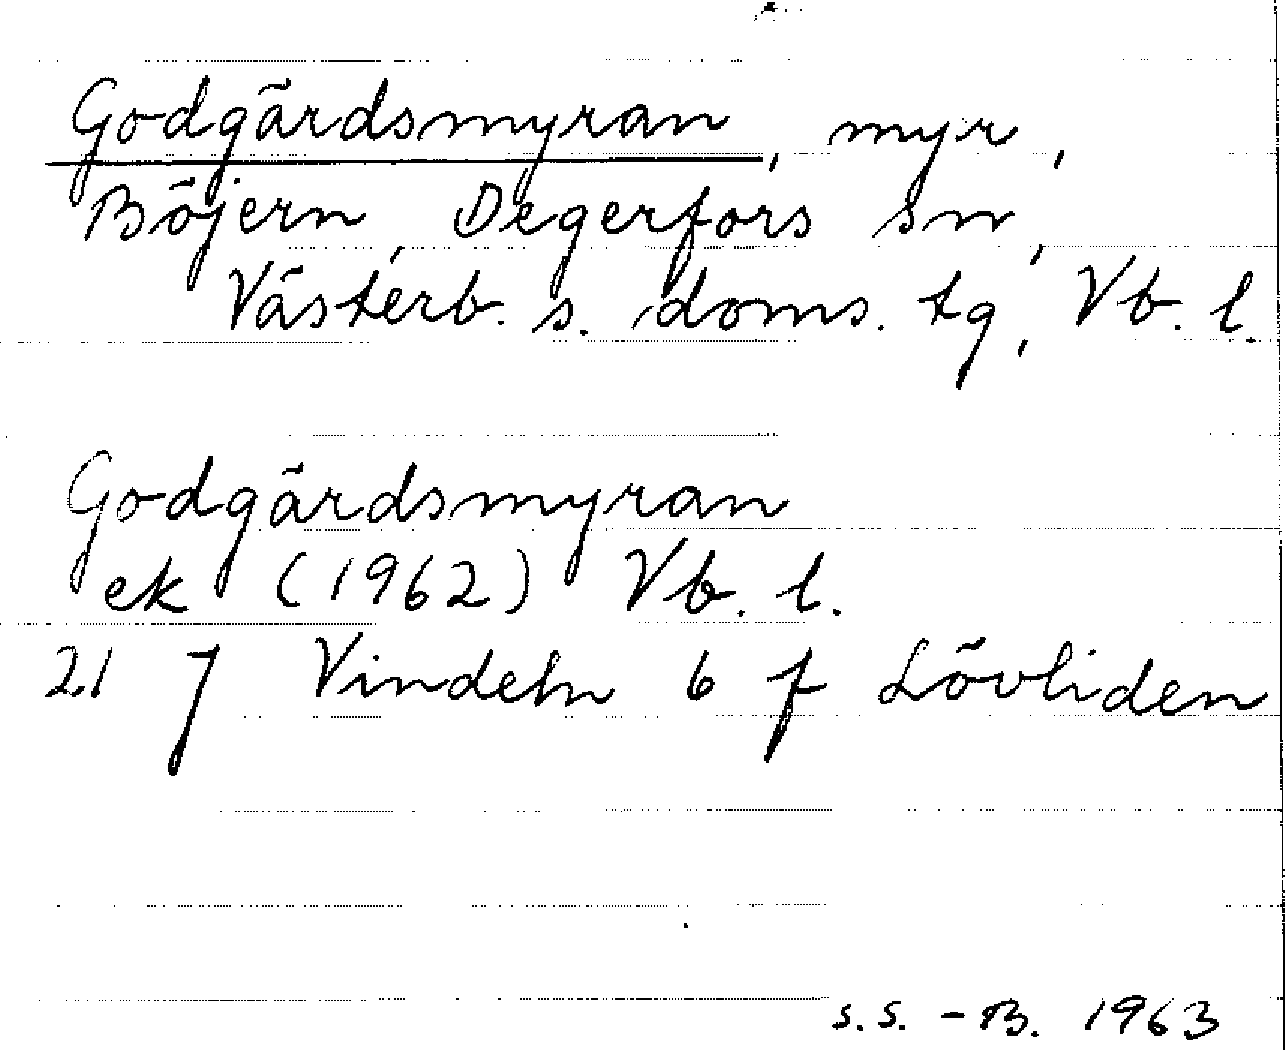 Godgärdsmyran, myr,
Böjern, Degerfors sn,
Västerb. s. doms. tg, Vb. l.
Godgärdsmyran
ek (1962) Vb. l.
21 J Vindeln 6 f Lövliden
S.S. - B. 1963